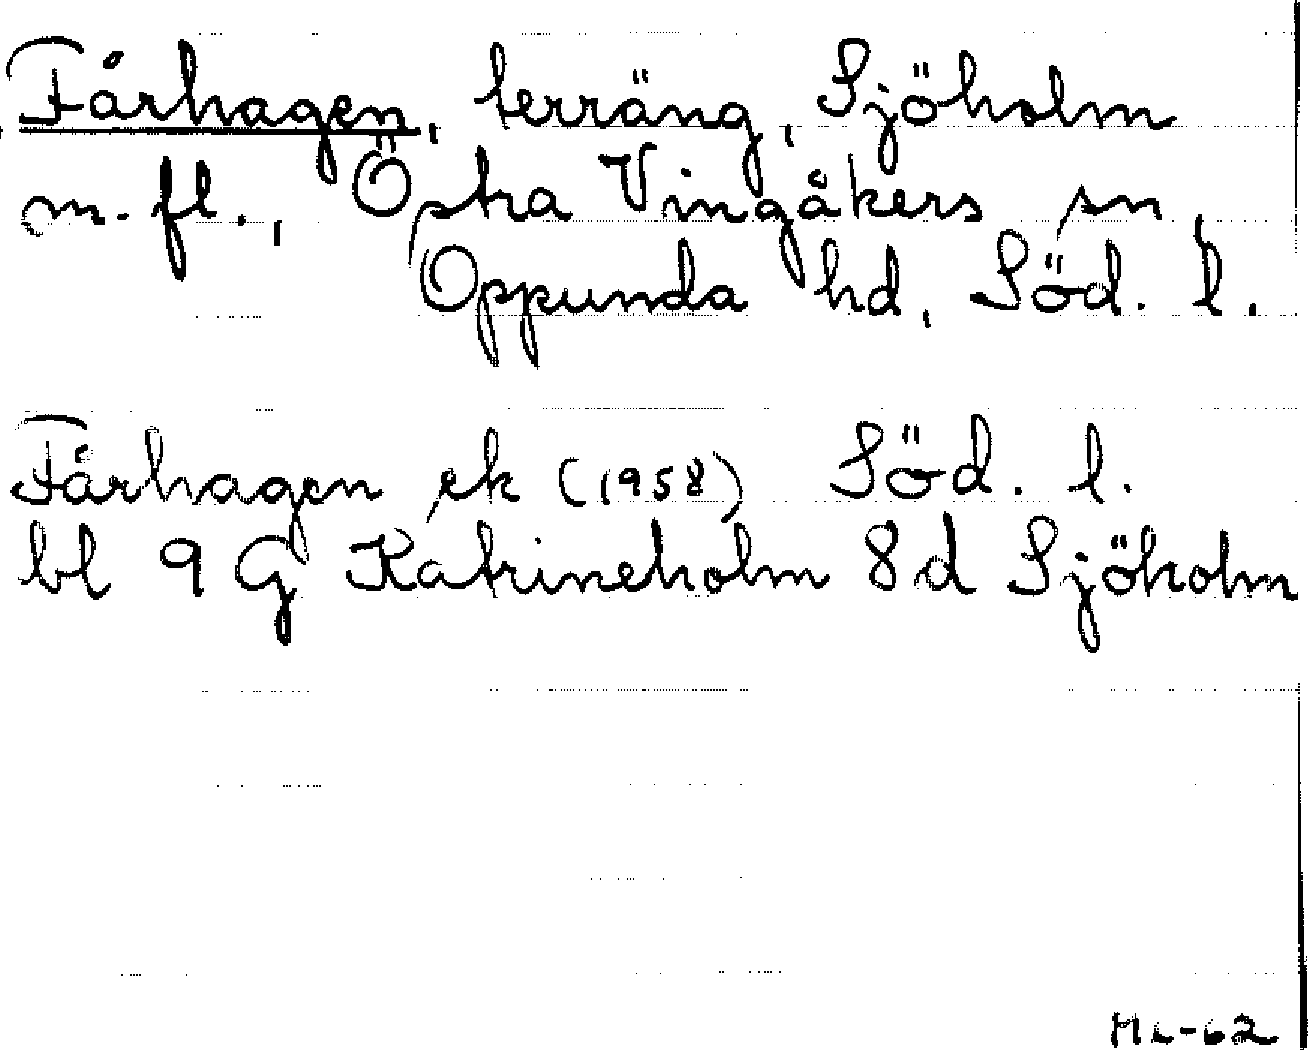 Fårhagen, terräng, Sjöholm
m. fl., Östra Vingåkers sn,
Oppunda hd, Söd. l.
Fårhagen ek (1958) Söd. l.
bl 9 G Katrineholm 8d Sjöholm
ML-62